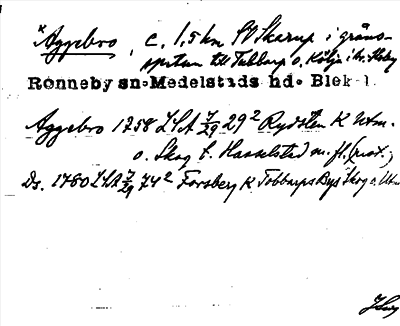 *Aggebro, c. 1.5 km SV Skarup i gräns-
spetsen till Tubbarp o.
Ronneby sn. Medelstads hd. Blek 1.
Aggebro 1758 LSA 7/29 29² Rydstén K Utm.
o. Skog t. Hasselstad m. fl.
Ds. 1780 LSA 7/29 74² Forsberg K Tobbarps Bys Skog o. Utm